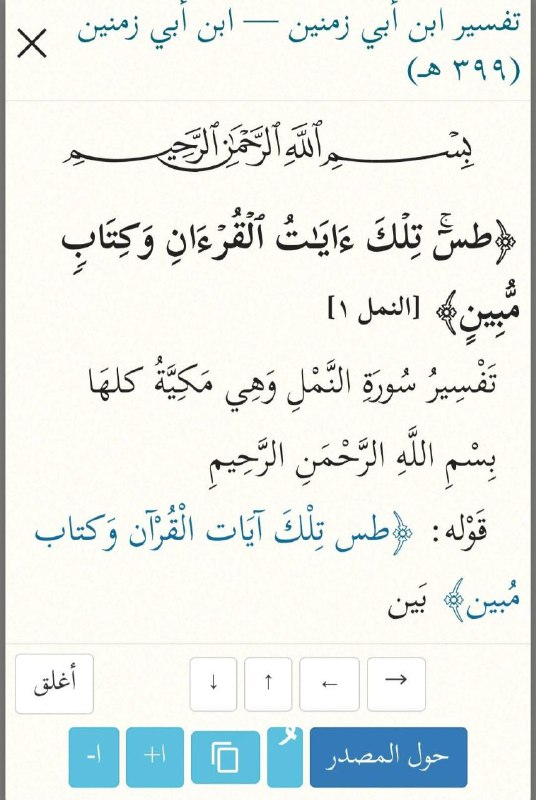 تفسير ابن أبي زمنين — ابن أبي زمنين
(٣٩٩ هـ)
بِسْمِ ٱللَّهِ ٱلرَّحْمَٰنِ ٱلرَّحِيمِ
﴿طسۤۚ تِلْكَ ءَايَـٰتُ ٱلْقُرْءَانِ وَكِتَابٍ
مُّبِينٍ﴾ [النمل ١]
تَفْسِيرُ سُورَةِ النَّمْلِ وَهِي مَكِيَّةُ كلهَا
بِسْمِ اللَّهِ الرَّحْمَنِ الرَّحِيمِ
قَوْله: ﴿طس تِلْكَ آيَات الْقُرْآن وَكتاب
مُبين﴾ بَين
أغلق ↓ ↑ ← →
حول المصدر ا+ ا-